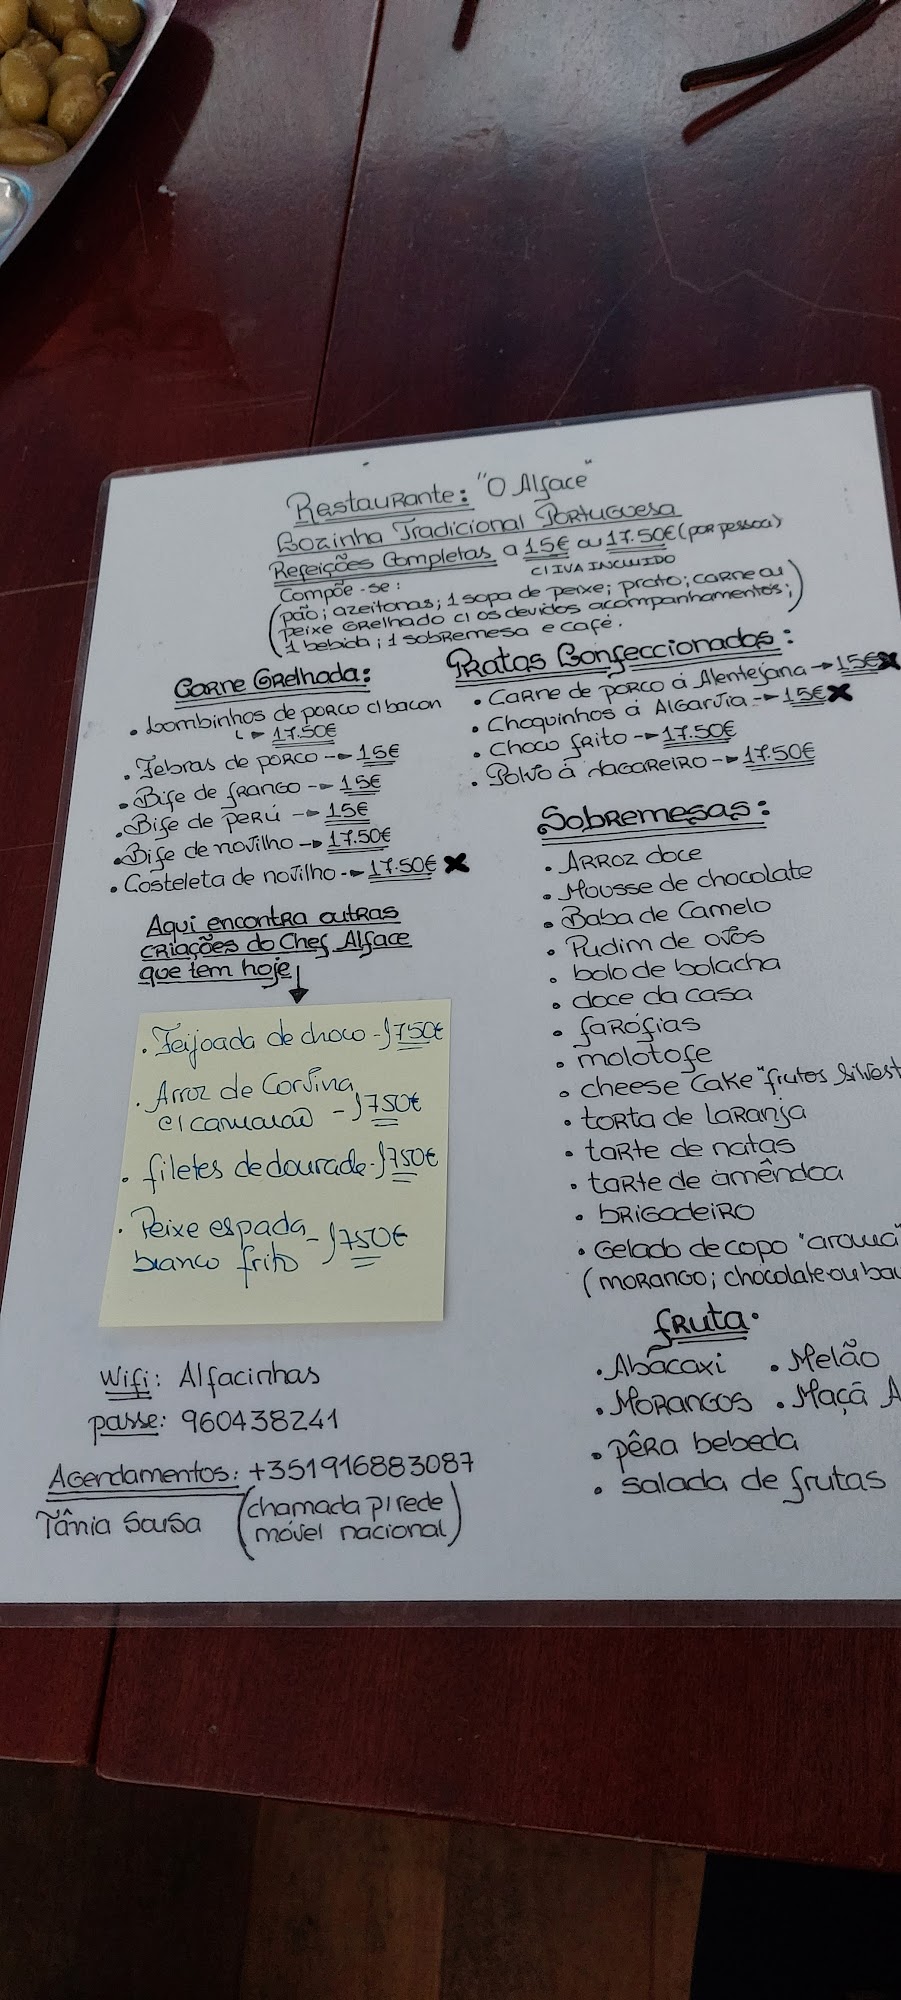 Restaurante: "O Alface"
Cozinha Tradicional Portuguesa
Refeições Completas a 15€ ou 17.50€ (por pessoa)
c/ IVA INCLUIDO
Compõe-se:
(pão; azeitonas; 1 sopa de peixe; prato; carne ou
peixe Grelhado c/ os devidos acompanhamentos;
1 bebida; 1 sobremesa e café.)
Carne Grelhada:
• Lombinhos de porco c/ bacon
↳ 17.50€
• Febras de porco -► 15€
• Bife de frango -► 15€
• Bife de Perú -► 15€
• Bife de novilho -► 17.50€
• Costeleta de novilho -► 17.50€ ✖
Aqui encontra outras
criações do Chef Alface
que tem hoje
• Feijoada de choco - 17.50€
• Arroz de Corvina
c/ camarão - 17.50€
• filetes de dourada - 17.50€
• Peixe espada
branco frito - 17.50€
Wifi: Alfacinhas
passe: 960438241
Agendamentos: +351916883087
Tânia Sousa (chamada p/ rede
móvel nacional)
Pratos Confeccionados:
• Carne de porco á Alentejana -► 15€ ✖
• Choquinhos á Algarvia -► 15€ ✖
• Choco frito -► 17.50€
• Polvo à Lagareiro -► 17.50€
Sobremesas:
• Arroz doce
• Mousse de chocolate
• Baba de Camelo
• Pudim de ovos
• bolo de bolacha
• doce da casa
• farófias
• molotofe
• cheese Cake "frutos Silvest
• torta de laranja
• tarte de natas
• tarte de amêndoa
• brigadeiro
• Gelado de copo
(morango; chocolate ou bau
fruta•
• Abacaxi • Melão
• Morangos • Maçã A
• pêra bebeda
• salada de frutas